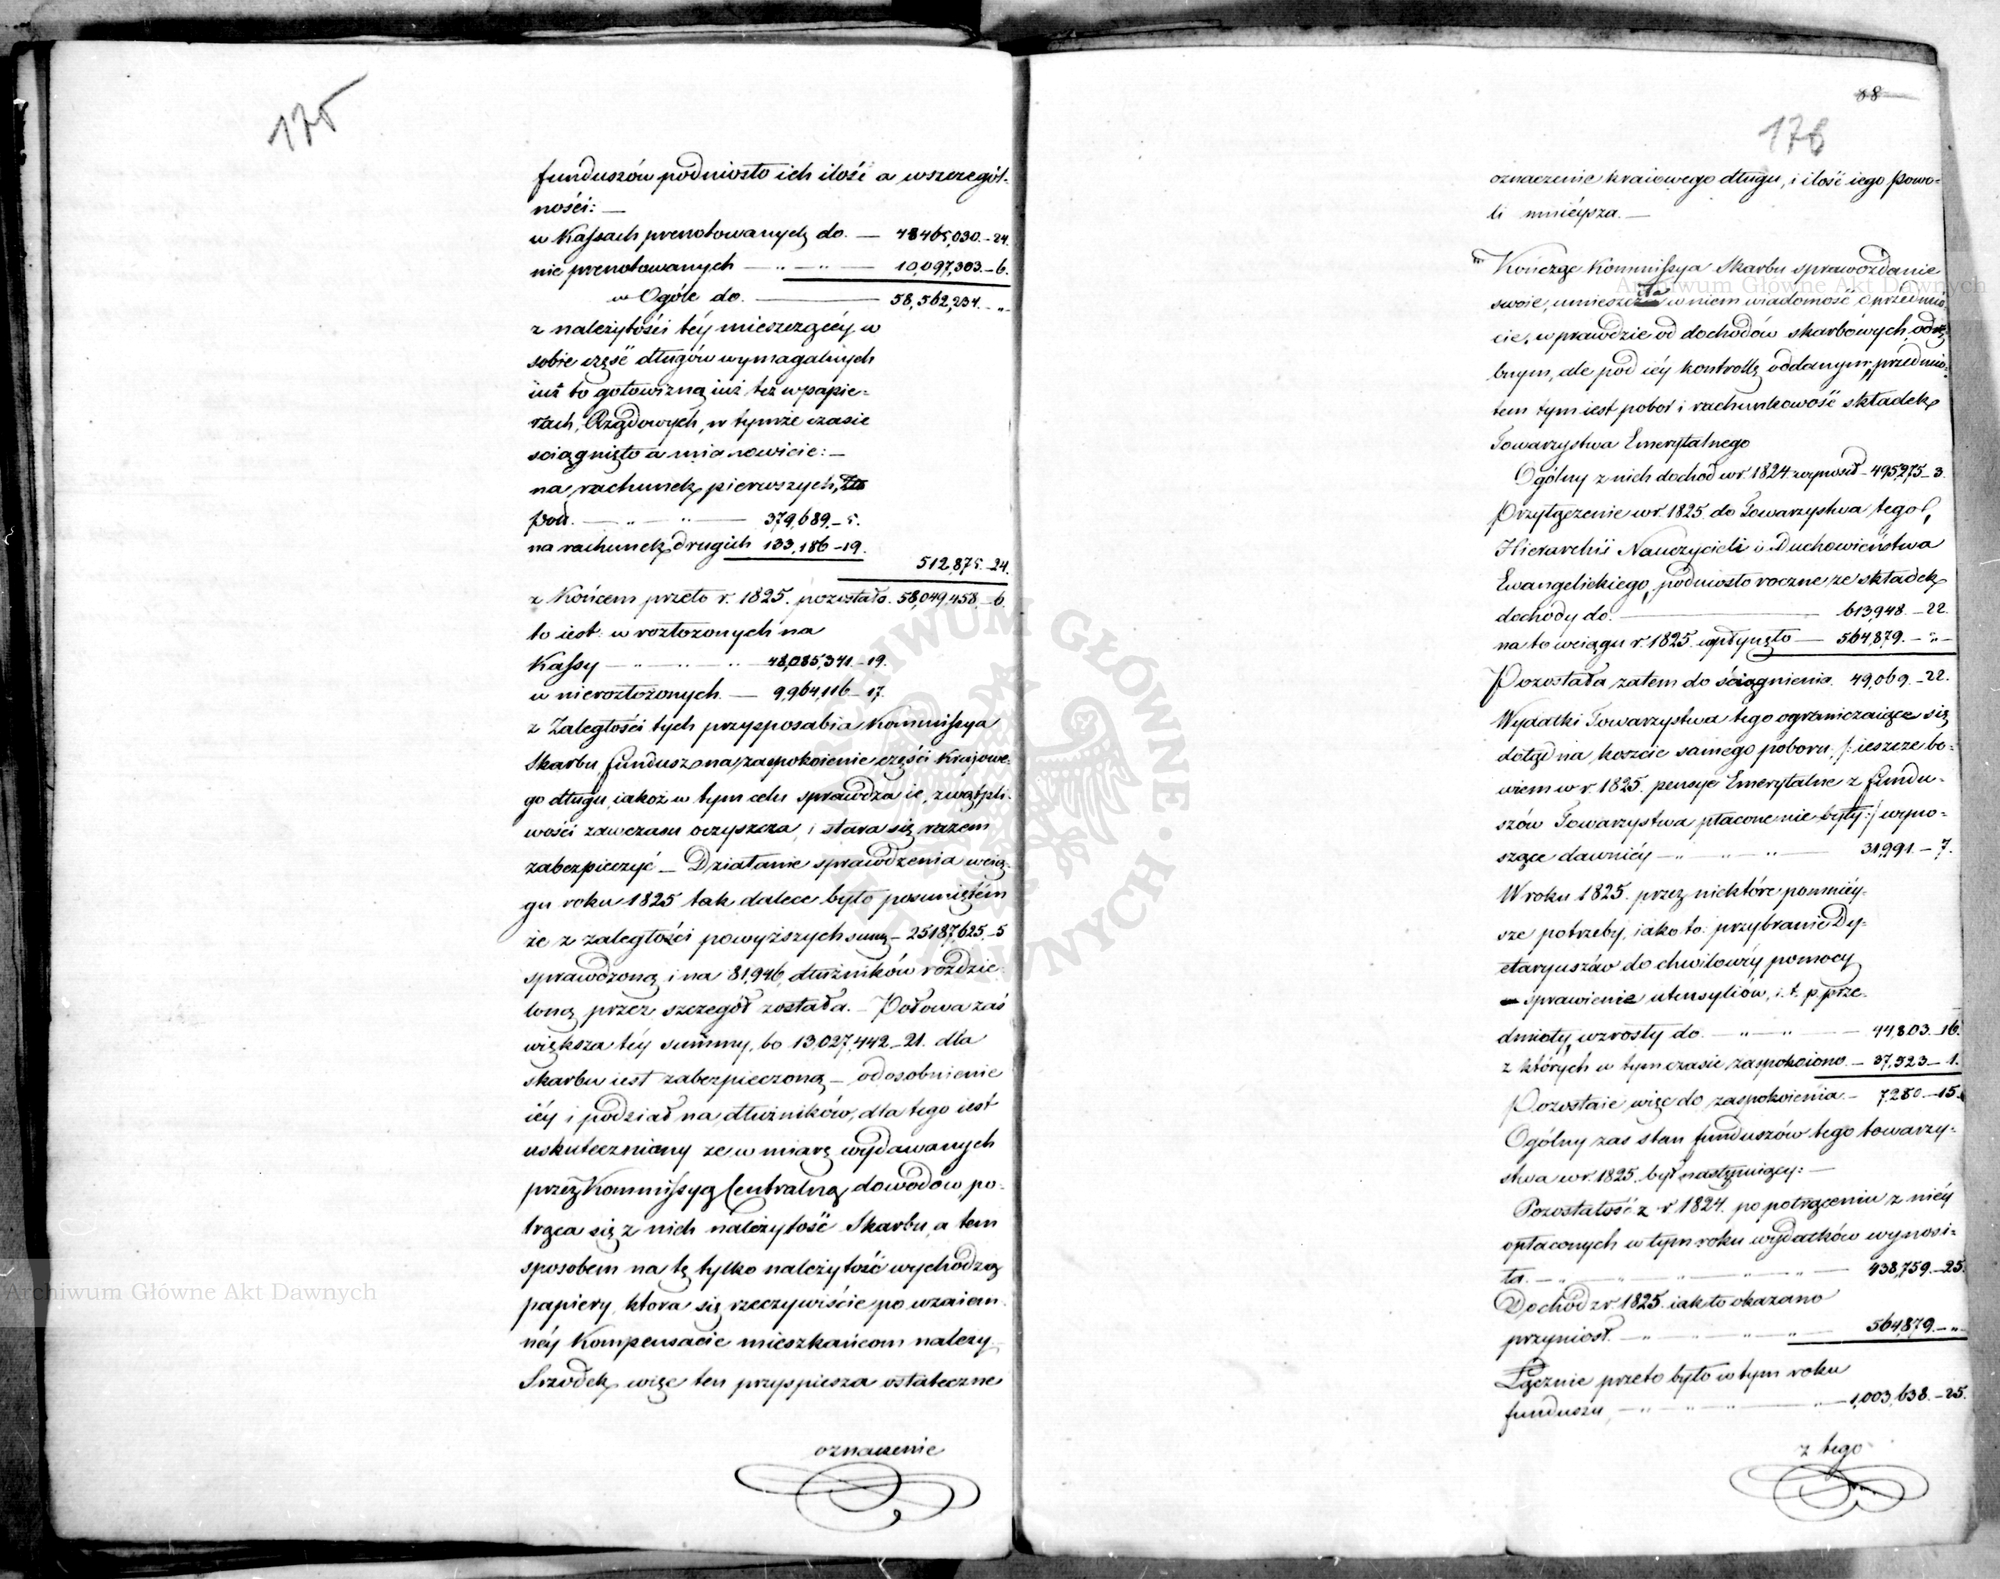 175
funduszów podniosło ich ilość a wszczegól-
ności: —
w Kassach prenotowanych do. — 48465,030.-24.
nie prenotowanych — „ — „ — 10,097,303.-6.
w Ogóle do. — 58,562,234. -„
z należytości téy mieszczącéy w
sobie część długów wymagalnych
iuż to gotowizną iuż też w papie-
rach, Rządowych, w tymże czasie
sciągnięto a mianowicie: —
na rachunek pierwszych,
pod. — „ — „ — 379,689.-5.
na rachunek drugich 133,186-19.
512,875.-24.
z Końcem przeto r. 1825. pozostało. 58,049,458.-6.
to iest: w rozłożonych na
Kassy — „ — „ — „ 48,085,341.-19.
w nierozłożonych — 9,964,116-17.
z Zaległości tych przysposabia Kommissya
Skarbu fundusz na zaspokoienie części Kraiowe-
go długu, iakoż w tym celu sprawdza ie, z wątpli-
wości zawczasu oczyszcza, i stara się razem
zabezpieczyć — Działanie sprawdzenia wcią-
gu roku 1825 tak dalece było posuniętém
że z zaległości powyższych summa — 25187,625.-5
sprawdzoną i na 81,946, dłużników rozdzie-
loną przez szczegół została. — Połowa zaś
większa téy summy, bo 13,027,442.-21. dla
skarbu iest zabezpieczoną — odosobnienie
iéy i podział na dłużników, dla tego iest
uskuteczniony ze w miarę wydawanych
przez Kommissyą Centralną dowodów, po-
trąca się z nich należytość Skarbu, a tem
sposobem na tę tylko należytość wychodzą
papiery, ktora się rzeczywiście po wzaiem-
néy Kompensacie mieszkańcom należy
Srzodek więc ten przyspiesza ostateczne
oznaczenie
88
176
oznaczenie kraiowego długu, i ilość iego powo-
li mnieysza. —
Kończąc Kommissya Skarbu sprawozdanie
swoie, umieszcza w niem wiadomość o przedmio-
cie, w prawdzie od dochodów skarbowych, odrę-
bnym, ale pod iéy kontrollę oddanym, przedmio-
tem tym iest pobor i rachunkowość składek
Towarzystwa Emerytalnego
Ogólny z nich dochod w r. 1824 wynosił — 495,275-3.
Przyłączenie w r. 1825. do Towarzystwa tegoż,
Hierarchii Nauczycieli i Duchowieństwa
Ewangelickiego, podniosło roczne ze składek
dochody do. — 613,948.-22.
na to wciągu r. 1825. wpłynęło — 564,879.-„-
Pozostała zatem do ściągnienia. 49,069.-22.
Wydatki Towarzystwa tego ograniczaiące się
dotąd na koszcie samego poboru, /: ieszcze bo-
wiem w r. 1825. pensye Emerytalne z fundu-
szów Towarzystwa płacone nie były :/ wyno-
szące dawniéy — „ — „ — „ — 31,991.-7.
W roku 1825. przez niektóre pomniéy-
sze potrzeby, iako to: przybranie Dy-
etaryuszów do chwilowéy pomocy
sprawienie utensyliów, i. t. p. prze-
dmioty, wzrosły do. — „ — „ — 44,803.-16.
z których w tymczasie zaspokoiono. — 37,523-1.
Pozostaie więc do zaspokoienia. — 7280.-15.
Ogólny zas stan funduszów tego towarzy-
stwa w r. 1825. był następuiący: —
Pozostałość z r. 1824. po potrąceniu z niéy
opłaconych w tym roku wydatków wynosi-
ła. — „ — „ — „ — „ — 438,759.-25.
Dochód z r. 1825. iak to okazano
przyniosł. — „ — „ — „ — 564,879.-„-
Łącznie przeto było w tym roku
funduszu, — „ — „ — „ — 1,003,638.-25.
z tego
Archiwum Główne Akt Dawnych
Archiwum Główne Akt Dawnych
ARCHIWUM GŁÓWNE AKT DAWNYCH